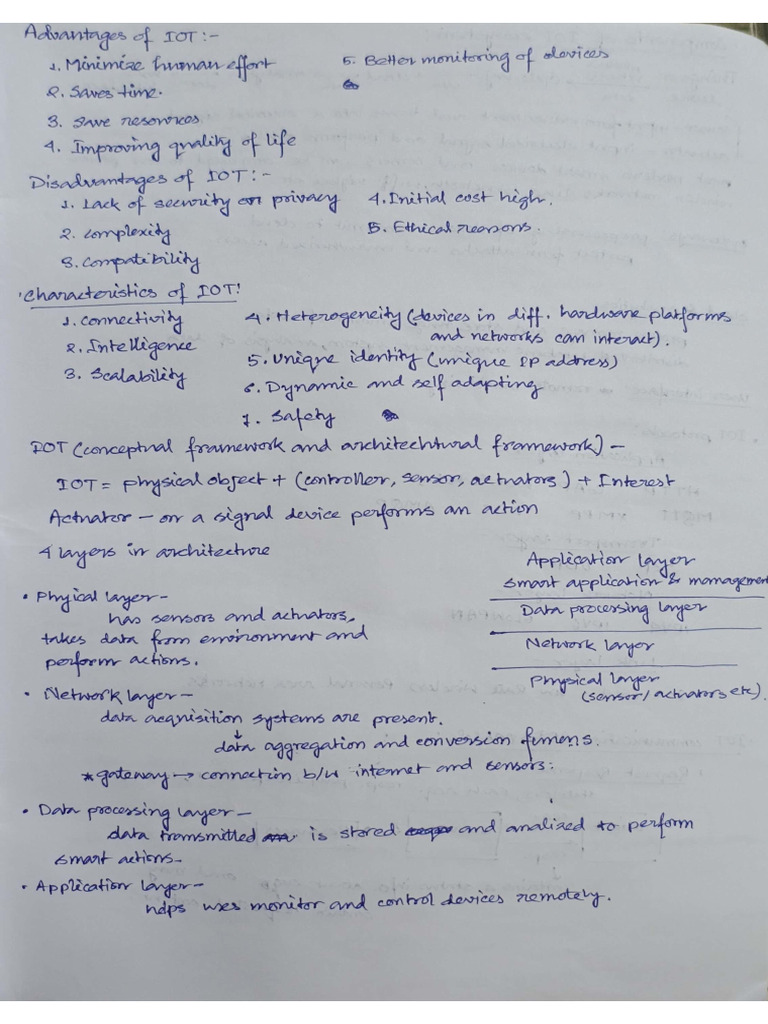 Advantages of IOT:-
1. Minimize human effort
2. Saves time.
3. Save resources
4. Improving quality of life
5. Better monitoring of devices
Disadvantages of IOT:-
1. Lack of security or privacy
2. complexity
3. Compatibility
4. Initial cost high.
5. Ethical reasons.
Characteristics of IOT:
1. connectivity
2. Intelligence
3. Scalability
4. Heterogeneity (devices in diff. hardware platforms
and networks can interact).
5. Unique identity (unique IP address)
6. Dynamic and self adapting
7. Safety
IOT (conceptual framework and architechtural framework) -
IOT = physical object + (controller, sensor, actuators) + Interest
Actuator - on a signal device performs an action
4 layers in architecture
• Phyical layer -
has sensors and actuators,
takes data from environment and
perform actions.
Application layer
smart application & management
Data processing layer
Network layer
Physical layer
(sensor/actuators etc).
• Network layer -
data acquisition systems are present.
data aggregation and conversion
* gateway → connection b/w internet and sensors.
• Data processing layer -
data transmitted is stored and analized to perform
smart actions -
• Application layer -
monitor and control devices remotely.